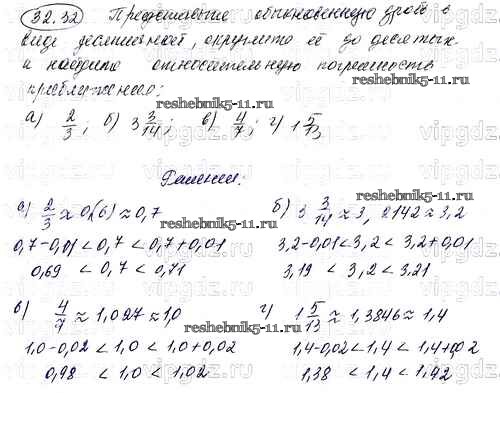 32.32 Представьте обыкновенную дробь в
виде десятичной, округлите её до десятых
и найдите относительную погрешность
приближения:
а) 2/3; б) 3 3/14; в) 4/7; г) 1 5/13
Решение:
а) 2/3 ≈ 0,(6) ≈ 0,7
0,7-0,01 < 0,7 < 0,7+0,01
0,69 < 0,7 < 0,71
б) 3 3/14 ≈ 3,2142 ≈ 3,2
3,2-0,01 < 3,2 < 3,2+0,01
3,19 < 3,2 < 3,21
в) 4/7 ≈ 1,027 ≈ 1,0
1,0-0,02 < 1,0 < 1,0+0,02
0,98 < 1,0 < 1,02
г) 1 5/13 ≈ 1,3846 ≈ 1,4
1,4-0,02 < 1,4 < 1,4+0,02
1,38 < 1,4 < 1,42
reshebnik5-11.ru
reshebnik5-11.ru
reshebnik5-11.ru
reshebnik5-11.ru
reshebnik5-11.ru
vipgdz.ru